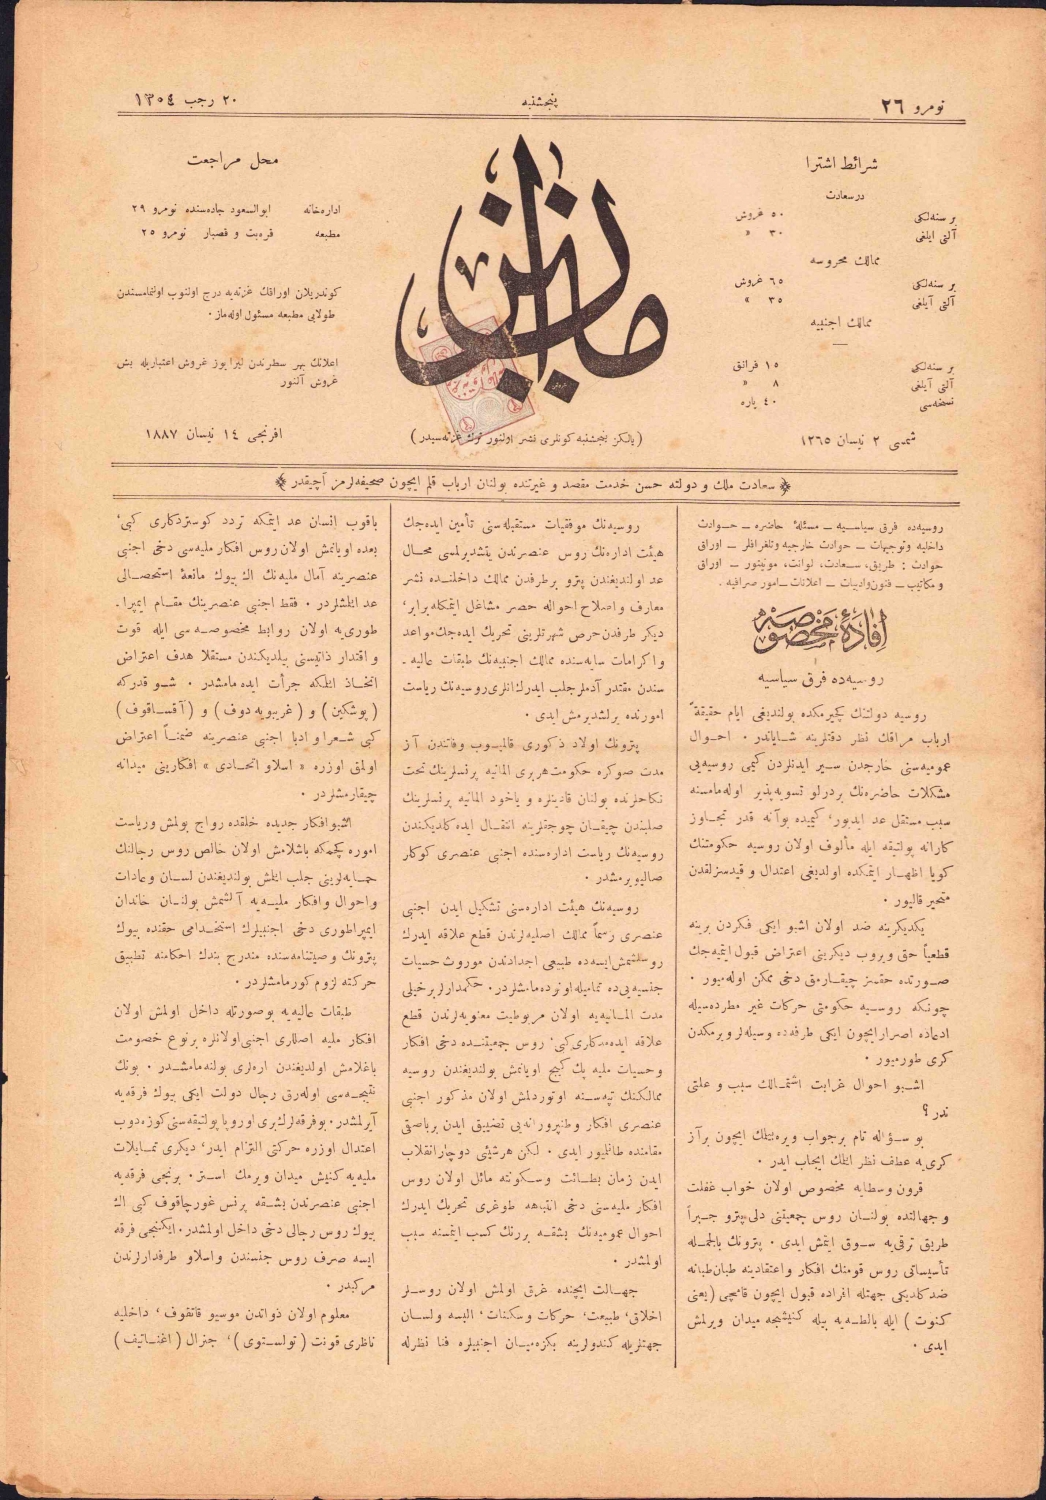 نومرو ٢٦
پنجشنبه
٢٠ رجب ١٣٠٤
شرائط اشترا
درسعادت
برسنه‌لکی ٥٠ غروش
آلتی ایلغی ٣٠ »
ممالك محروسه
برسنه‌لکی ٦٥ غروش
آلتی آیلغی ٣٥ »
ممالك اجنبیه
برسنه‌لکی ١٥ فرانق
آلتی آیلغی ٨ »
نسخه‌سی ٤٠ پاره
شمسی ٢ نیسان ١٢٦٥
میزان
(یالکز پنجشنبه کونلری نشر اولنور ترك غزته‌سیدر)
محل مراجعت
اداره‌خانه ابوالسعود جاده‌سنده نومرو ٢٩
مطبعه قره‌بت و قصبار نومرو ٢٥
کوندریلان اوراقك غزته‌یه درج اولنوب اولنمامسندن
طولایی مطبعه مسئول اوله‌ماز .
اعلانك بهر سطرندن لیرا یوز غروش اعتباریله بش
غروش آلنور
افرنجی ١٤ نیسان ١٨٨٧
سعادت ملك و دولته حسن خدمت مقصد و غیرتنده بولنان ارباب قلم ایچون صحیفه‌لرمز آچیقدر
روسیه‌ده فرق سیاسیه ـ مسئلهٔ حاضره ـ حوادث
داخلیه وتوجیهات ـ حوادث خارجیه وتلغرافلر ـ اوراق
حوادث : طریق، سعادت، لوانت، مونیتور ـ اوراق
ومکاتیب ـ فنون وادبیات ـ اعلانات ـ امور صرافیه .
افادهٔ مخصوصه
روسیه‌ده فرق سیاسیه
روسیه دولتنك کچیرمکده بولندیغی ایام حقیقةً
ارباب مراقك نظر دقتلرینه شایاندر . احوال
عمومیه‌سنی خارجدن سیر ایدنلردن کیمی روسیه‌یی
مشکلات حاضره‌نك بردرلو تسویه‌پذیر اوله‌مامسنه
سبب مستقل عد ایدیور، کیمیده بوآنه قدر تجاوز
کارانه پولتیقه ایله مألوف اولان روسیه حکومتنك
کویا اظهار ایتمکده اولدیغی اعتدال و قیدسزلقدن
متحیر قالیور .
یکدیکرینه ضد اولان اشبو ایکی فکردن برینه
قطعیاً حق ویروب دیکرینی اعتراض قبول ایتمیه‌جك
صورتده حقسز چیقارمق دخی ممکن اوله‌میور .
چونکه روسیه حکومتی حرکات غیر مطرده‌سیله
ادعاده اصرار ایچون ایکی طرفه‌ده وسیله‌لر ویرمکدن
کری طورمیور .
اشبو احوال غرابت اشتمالك سبب و علتی
ندر ؟
بو سؤاله تام برجواب ویره‌بیلمك ایچون برآز
کری‌یه عطف نظر ایتمك ایجاب ایدر .
قرون وسطایه مخصوص اولان خواب غفلت
و جهالتده بولنان روس جمعیتنی دلی‌پترو جبراً
طریق ترقی‌یه سوق ایتمش ایدی . پترونك بالجمله
تأسیساتی روس قومنك افکار واعتقادینه طبان‌طبانه
ضد کلدیکی جهتله افراده قبول ایچون قامچی (یعنی
کنوت) ایله بالطه‌یه بیله کنیشجه میدان ویرلمش
ایدی .
روسیه‌نك موفقیات مستقبله‌سنی تأمین ایده‌جك
هیئت اداره‌نك روس عنصرندن یتشدیرلمسی محال
عد اولندیغندن پترو برطرفدن ممالك داخلنده نشر
معارف واصلاح احواله حصر مشاغل ایتمکله‌برابر،
دیکر طرفدن حرص شهرتلرینی تحریك ایده‌جك مواعد
واکرامات سایه‌سنده ممالك اجنبیه‌نك طبقات عالیه ـ
سندن مقتدر آدملر جلب ایدرك انلری روسیه‌نك ریاست
امورنده یرلشدیرمش ایدی .
پترونك اولاد ذکوری قالمیوب وفاتندن آز
مدت صوکره حکومت هربری المانیه پرنسلرینك تحت
نکاحلرنده بولنان قادینلره و یاخود المانیه پرنسلرینك
صلبندن چیقان چوجقلرینه انتقال ایده‌کلدیکندن
روسیه‌نك ریاست اداره‌سنده اجنبی عنصری کوکلر
صالیویرمشدر .
روسیه‌نك هیئت اداره‌سنی تشکیل ایدن اجنبی
عنصری رسماً ممالك اصلیه‌لرندن قطع علاقه ایدرك
روسلشمش ایسه‌ده طبیعی اجدادندن موروث حسیات
جنسیه‌یی‌ده تمامیله اونوده‌مامشلردر . حکمدارلر برخیلی
مدت المانیه‌یه اولان مربوطیت معنویه‌لرندن قطع
علاقه ایده‌مدکلری کبی روس جمعیتنده دخی افکار
وحسیات ملیه پك کیج اویانمش بولندیغندن روسیه
ممالکنك تپه‌سنه اوتوردلمش اولان مذکور اجنبی
عنصری افکار وطنپرورانه‌یی تضییق ایدن برباصقی
مقامنده طانلیور ایدی . لکن هرشیئی دوچار انقلاب
ایدن زمان بطائت وسکونته مائل اولان روس
افکار ملیه‌سنی دخی انتباهه طوغری تحریك ایدرك
احوال عمومیه‌نك بشقه بررنك کسب ایتمسنه سبب
اولمشدر .
جهالت ایچنده غرق اولمش اولان روسلر
اخلاق، طبیعت، حرکات وسکنات، البسه ولسان
جهتلریله کندولرینه بکزه‌میان اجنبیلره فنا نظرله
باقوب انسان عد ایتمکه تردد کوستردکلری کبی،
بعده اویانمش اولان روس افکار ملیه‌سی دخی اجنبی
عنصرینه آمال ملیه‌نك اك بیوك مانعهٔ استحصالی
عد ائلشلردر . فقط اجنبی عنصرینك مقام ایمپرا ـ
طوری‌یه اولان روابط مخصوصه‌سی ایله قوت
و اقتدار ذاتیسنی بیلدیکندن مستقلا هدف اعتراض
اتخاذ ائلکه جرأت ایده‌مامشدر . شو قدرکه
(پوشکین) و (غریبویه‌دوف) و (آقساقوف)
کبی شعرا و ادبا اجنبی عنصرینه ضمناً اعتراض
اولمق اوزره « اسلاو اتحادی » افکارینی میدانه
چیقارمشلردر .
اشبوافکار جدیده خلقده رواج بولمش وریاست
اموره کچمکه باشلامش اولان خالص روس رجالنك
حمایه‌لرینی جلب ائلش بولندیغندن لسان وعادات
واحوال وافکار ملیه‌یه آلشمش بولنان خاندان
ایمپراطوری دخی اجنبیلرك استخدامی حقنده بیوك
پترونك وصیتنامه‌سنده مندرج بندك احکامنه تطبیق
حرکته لزوم کورمامشلردر .
طبقات عالیه‌یه بوصورتله داخل اولمش اولان
افکار ملیه اصللری اجنبی اولانلره برنوع خصومت
باغلامش اولدیغندن اره‌لری بولنه‌مامشدر . بونك
نتیجه‌سی اوله‌رق رجال دولت ایکی بیوك فرقه‌یه
آیرلمشدر . بوفرقه‌لرك بری اوروپا پولتیقه‌سنی کوزه‌دوب
اعتدال اوزره حرکتی التزام ایدر، دیکری تمایلات
ملیه‌یه کنیش میدان ویرمك استر . برنجی فرقه‌یه
اجنبی عنصرندن بشقه پرنس غورچاقوف کبی اك
بیوك روس رجالی دخی داخل اولمشدر . ایکنجی فرقه
ایسه صرف روس جنسندن واسلاو طرفدارلرندن
مرکبدر .
معلوم اولان ذواتدن موسیو قاتقوف، داخلیه
ناظری قونت (تولستوی)، جنرال (اغناتیف)